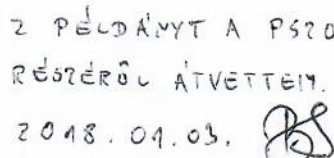 2 PÉLDÁNYT A PSZO
RÉSZÉRŐL ÁTVETTEM.
2018.01.03.